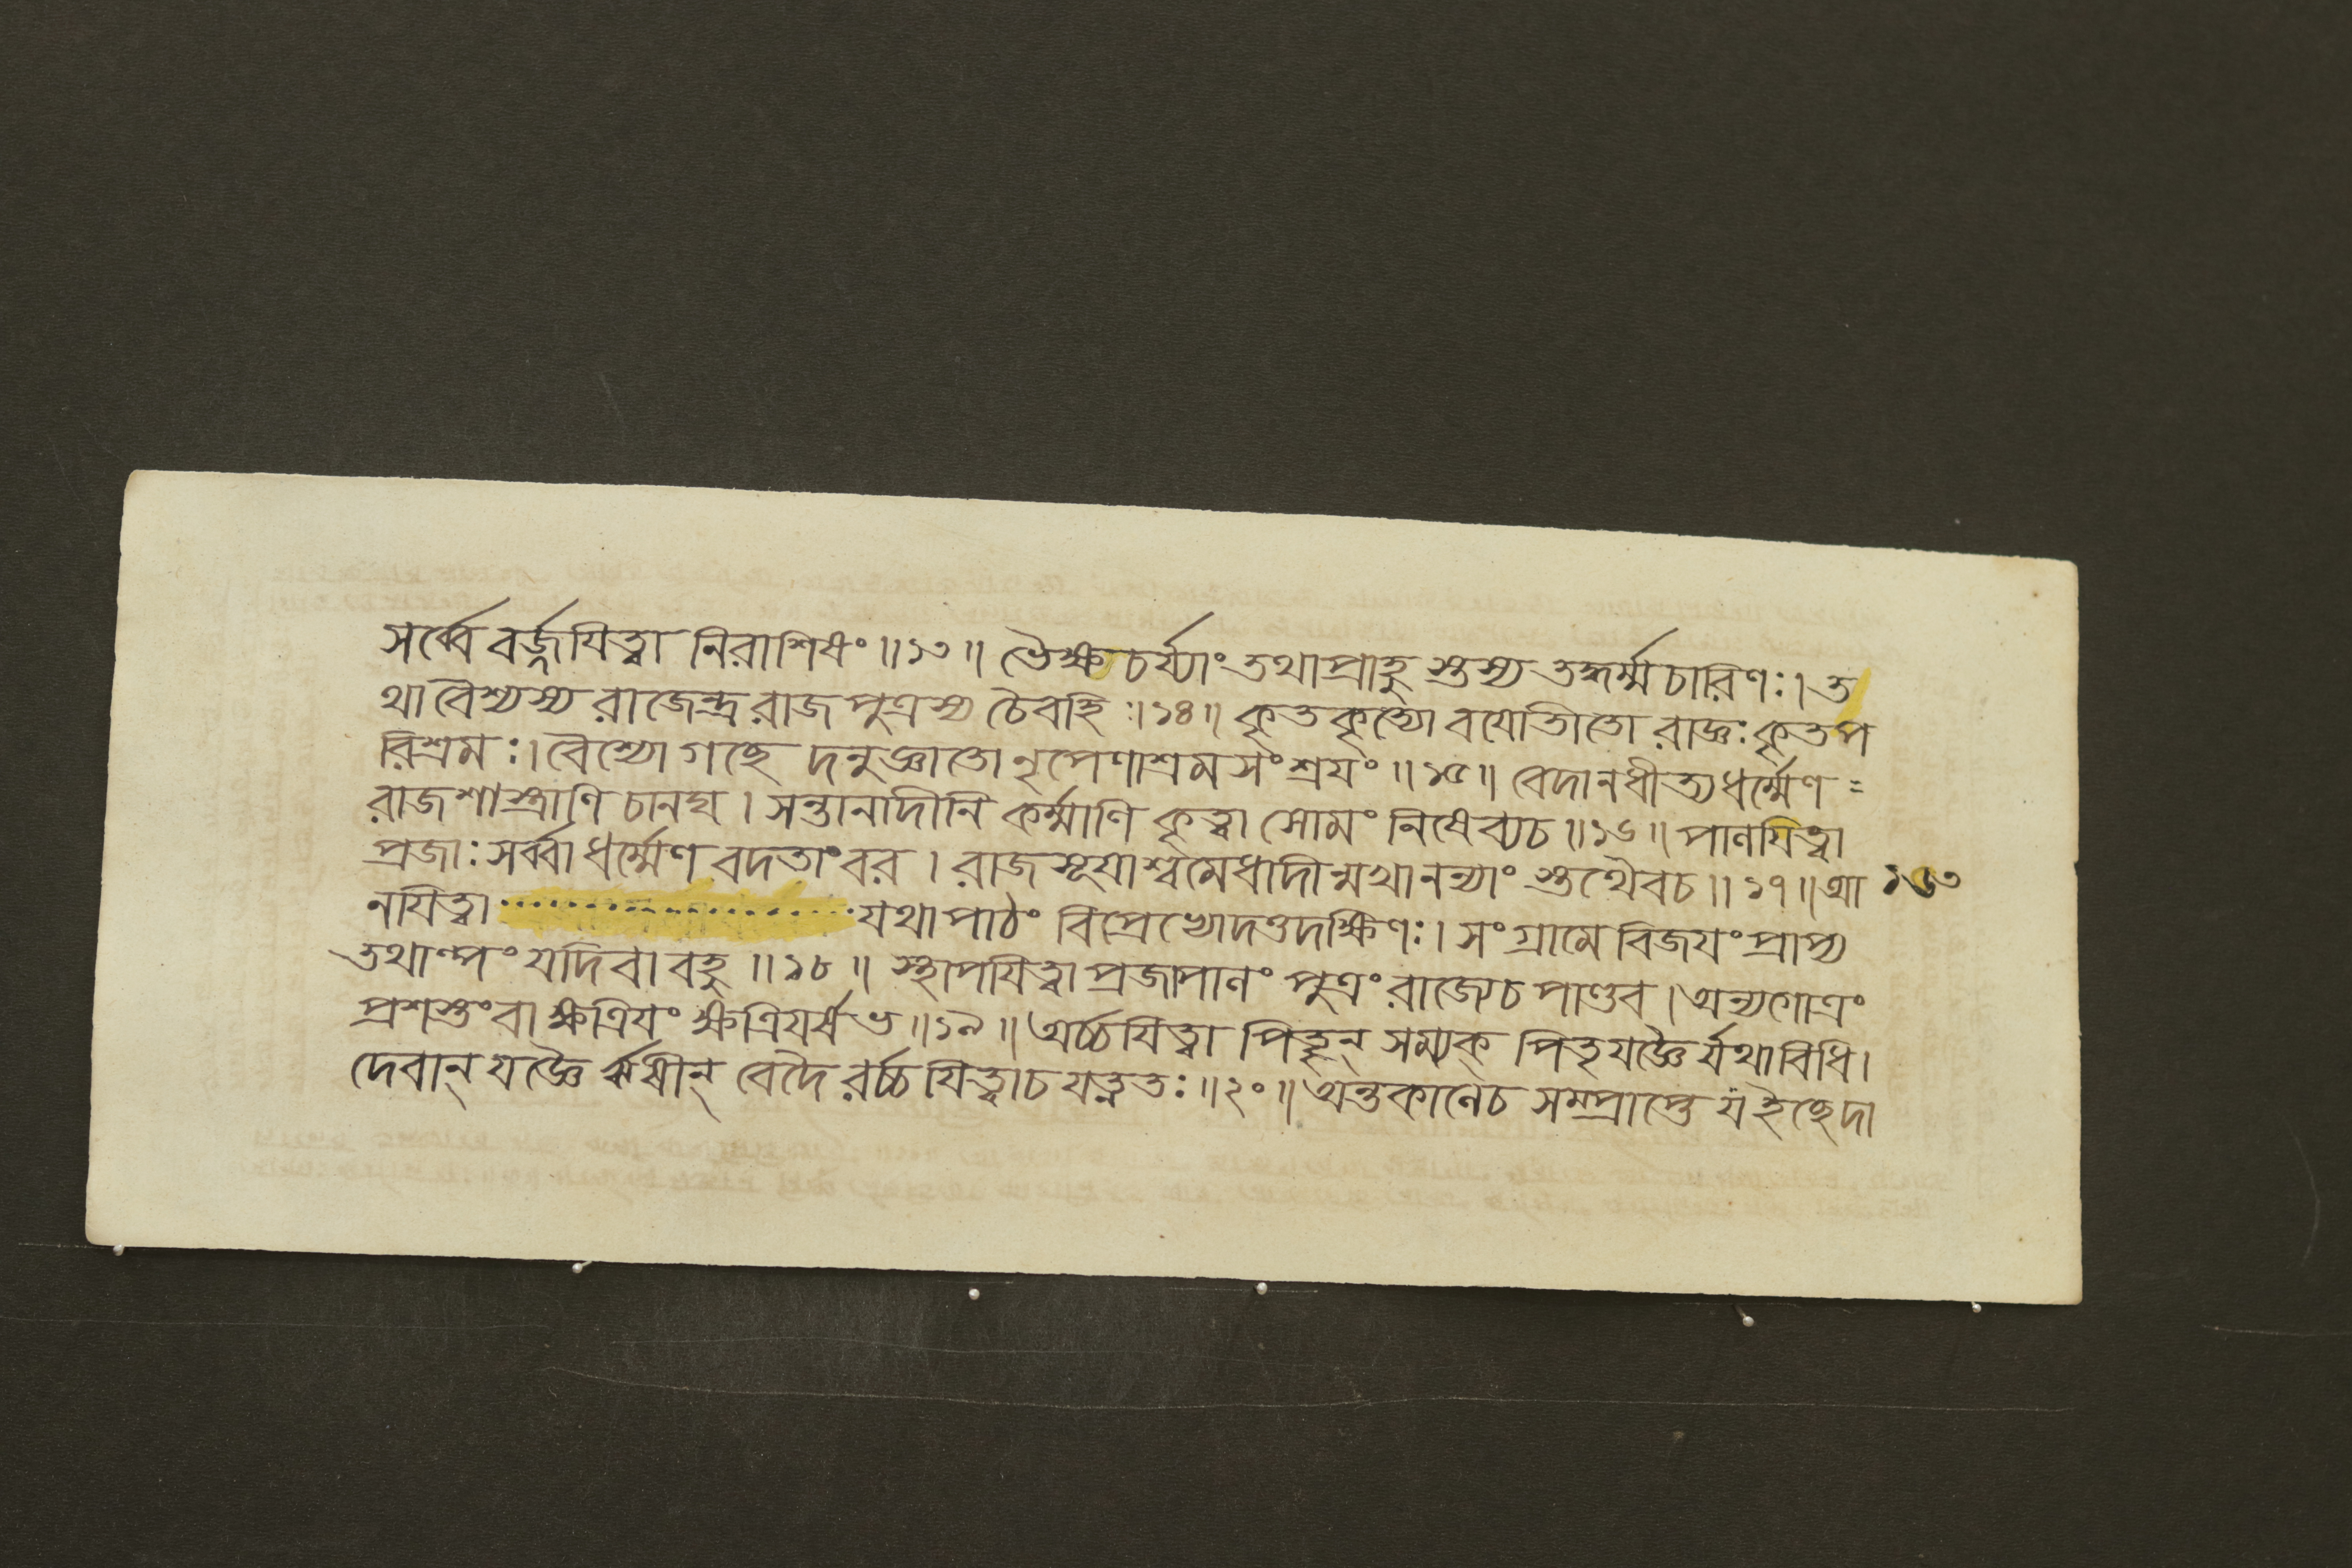 সর্ব্বে বর্জ্জযিত্বা নিরাশিষং ॥১৩॥ ভৈক্ষচর্য্যাং তথাপ্রাহু স্তস্য তদ্ধর্ম্মচারিণঃ। ত
থা বৈশ্যস্য রাজেন্দ্র রাজপুত্রস্য চৈবহি ॥১৪॥ কৃতকৃত্যো বযোতীতো রাজ্ঞঃ কৃতপ
রিশ্রমঃ। বৈশ্যো গচ্ছে দনুজ্ঞাতো নৃপেণাশ্রমসংশ্রযং ॥১৫॥ বেদানধীত্যধর্ম্মেণ =
রাজশাস্ত্রাণি চানঘ । সন্তানাদীনি কর্ম্মাণি কৃত্বা সোমং নিষেব্যচ ॥১৬॥ পালযিত্বা
প্রজাঃ সর্ব্বা ধর্ম্মেণ বদতাংবর । রাজসূযাশ্বমেধাদীন্মখানন্যাং স্তথৈবচ ॥১৭॥ আ ১৬৩
নযিত্বা যথাপাঠং বিপ্রেভ্যোদত্তদক্ষিণঃ। সংগ্রামে বিজযং প্রাপ্য
তথাল্পং যদিবা বহু ॥১৮॥ স্থাপযিত্বা প্রজাপালং পুত্রং রাজ্যেচ পাণ্ডব। অন্যগোত্রং
প্রশস্তংবা ক্ষত্রিযং ক্ষত্রিযর্ষভ ॥১৯॥ অর্চ্চযিত্বা পিতৄন্ সম্যক্ পিতৃযজ্ঞৈ র্যথাবিধি।
দেবান্ যজ্ঞৈ র্ঋষীন্ বেদৈ রর্চ্চযিত্বাচ যত্নতঃ ॥২০॥ অন্তকালেচ সম্প্রাপ্তে য ইচ্ছেদা